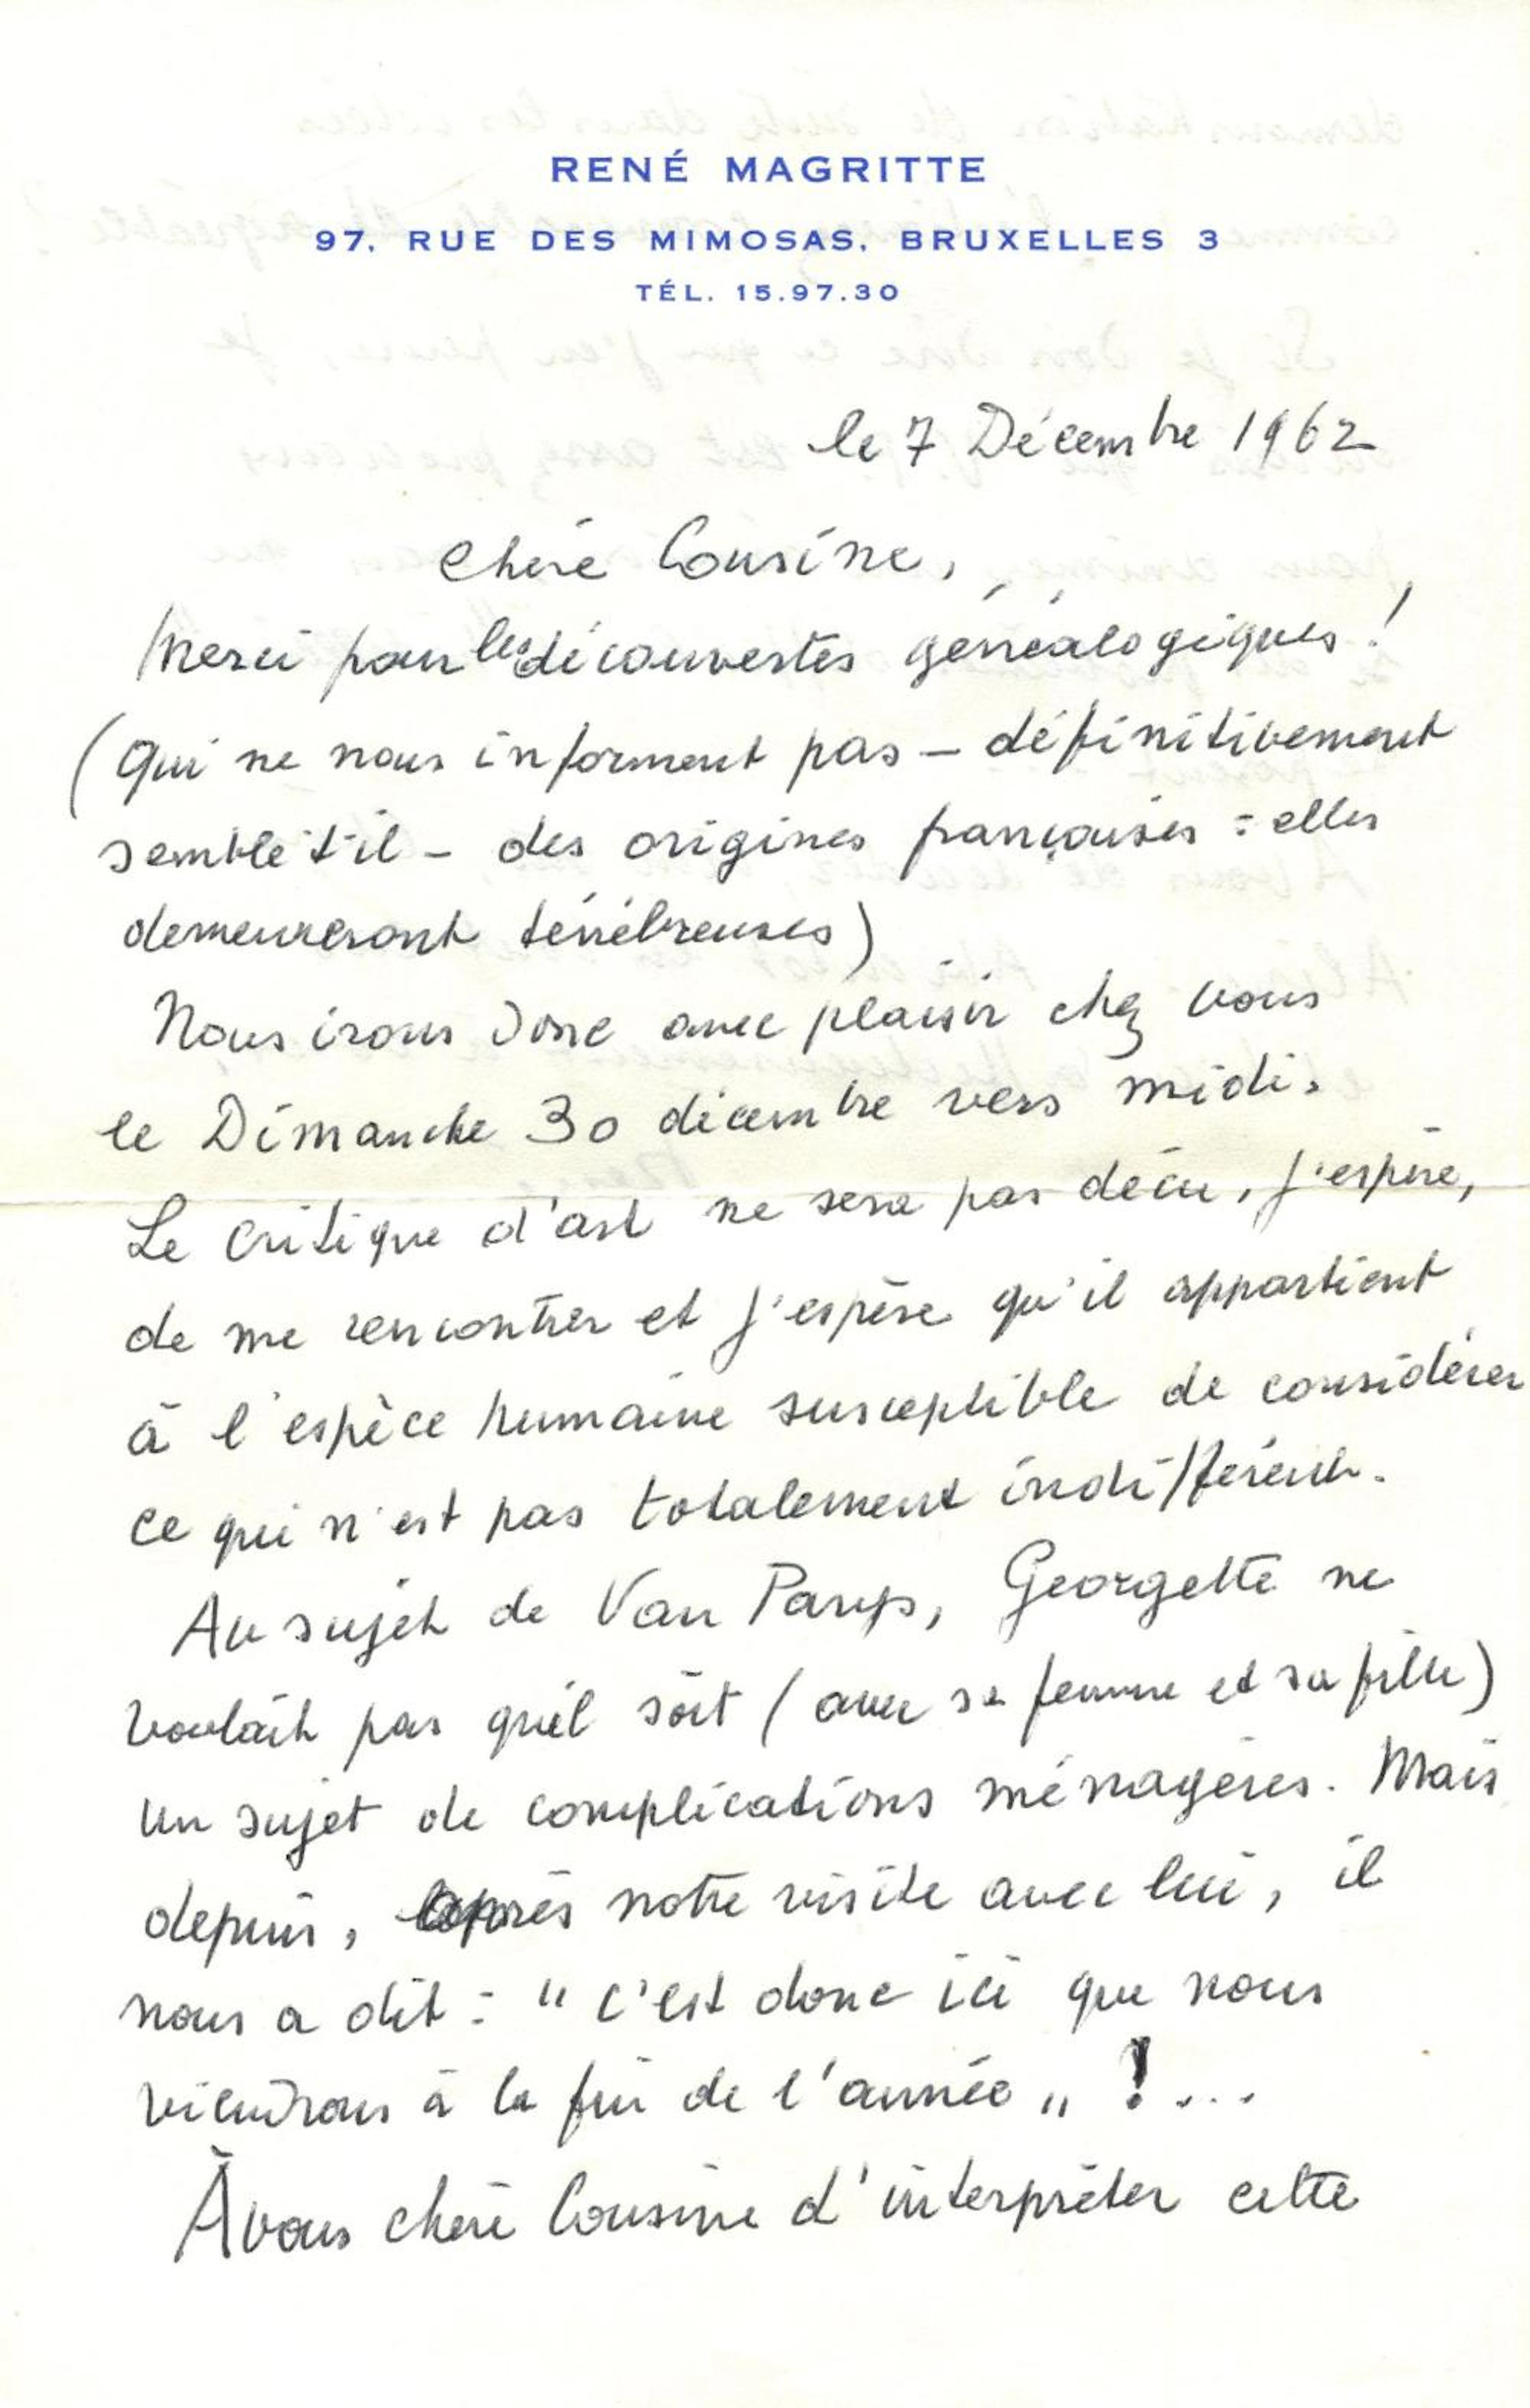 RENÉ MAGRITTE
97, RUE DES MIMOSAS, BRUXELLES 3
TÉL. 15.97.30
le 7 Décembre 1962
Chère Cousine,
Merci pour les découvertes généalogiques !
(Qui ne nous informent pas – définitivement
semble t'il – des origines françaises : elles
demeureront ténébreuses)
Nous irons donc avec plaisir chez vous
le Dimanche 30 décembre vers midi.
Le critique d'art ne sera pas déçu, j'espère,
de me rencontrer et j'espère qu'il appartient
à l'espèce humaine susceptible de considérer
ce qui n'est pas totalement indifférent.
Au sujet de Van Parys, Georgette ne
voulait pas qu'il soit (avec sa femme et sa fille)
un sujet de complications ménagères. Mais
depuis, après notre visite avec lui, il
nous a dit : " c'est donc ici que nous
viendrons à la fin de l'année " ! ...
À vous chère Cousine d'interpréter cette